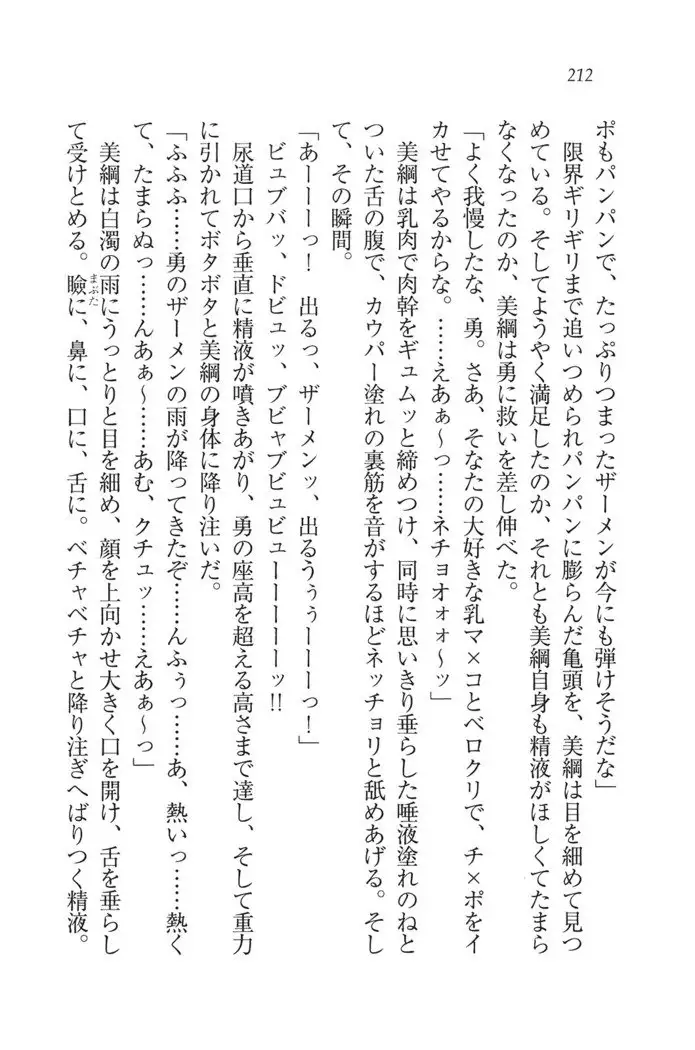 212
ポもパンパンで、たっぷりつまったザーメンが今にも弾けそうだな」
限界ギリギリまで追いつめられパンパンに膨らんだ亀頭を、美綱は目を細めて見つ
めている。そしてようやく満足したのか、それとも美綱自身も精液がほしくてたまら
なくなったのか、美綱は勇に救いを差し伸べた。
「よく我慢したな、勇。さあ、そなたの大好きな乳マ×コとベロクリで、チ×ポをイ
カせてやるからな。……えあぁ～っ……ネチョオォォ～ッ」
美綱は乳肉で肉幹をギュムッと締めつけ、同時に思いきり垂らした唾液塗れのねと
ついた舌の腹で、カウパー塗れの裏筋を音がするほどネッチョリと舐めあげる。そし
て、その瞬間。
「あーーーっ！　出るっ、ザーメンッ、出るうぅぅーーーっ！」
ビュブバッ、ドビュッ、ブビャブビュビューーーーーッ!!
尿道口から垂直に精液が噴きあがり、勇の座高を超える高さまで達し、そして重力
に引かれてボタボタと美綱の身体に降り注いだ。
「ふふふ……勇のザーメンの雨が降ってきたぞ……んふぅっ……あ、熱いっ……熱く
て、たまらぬっ……んあぁ～……あむ、クチュッ……えあぁ～っ」
美綱は白濁の雨にうっとりと目を細め、顔を上向かせ大きく口を開け、舌を垂らし
て受けとめる。瞼に、鼻に、口に、舌に。ベチャベチャと降り注ぎへばりつく精液。
まぶた